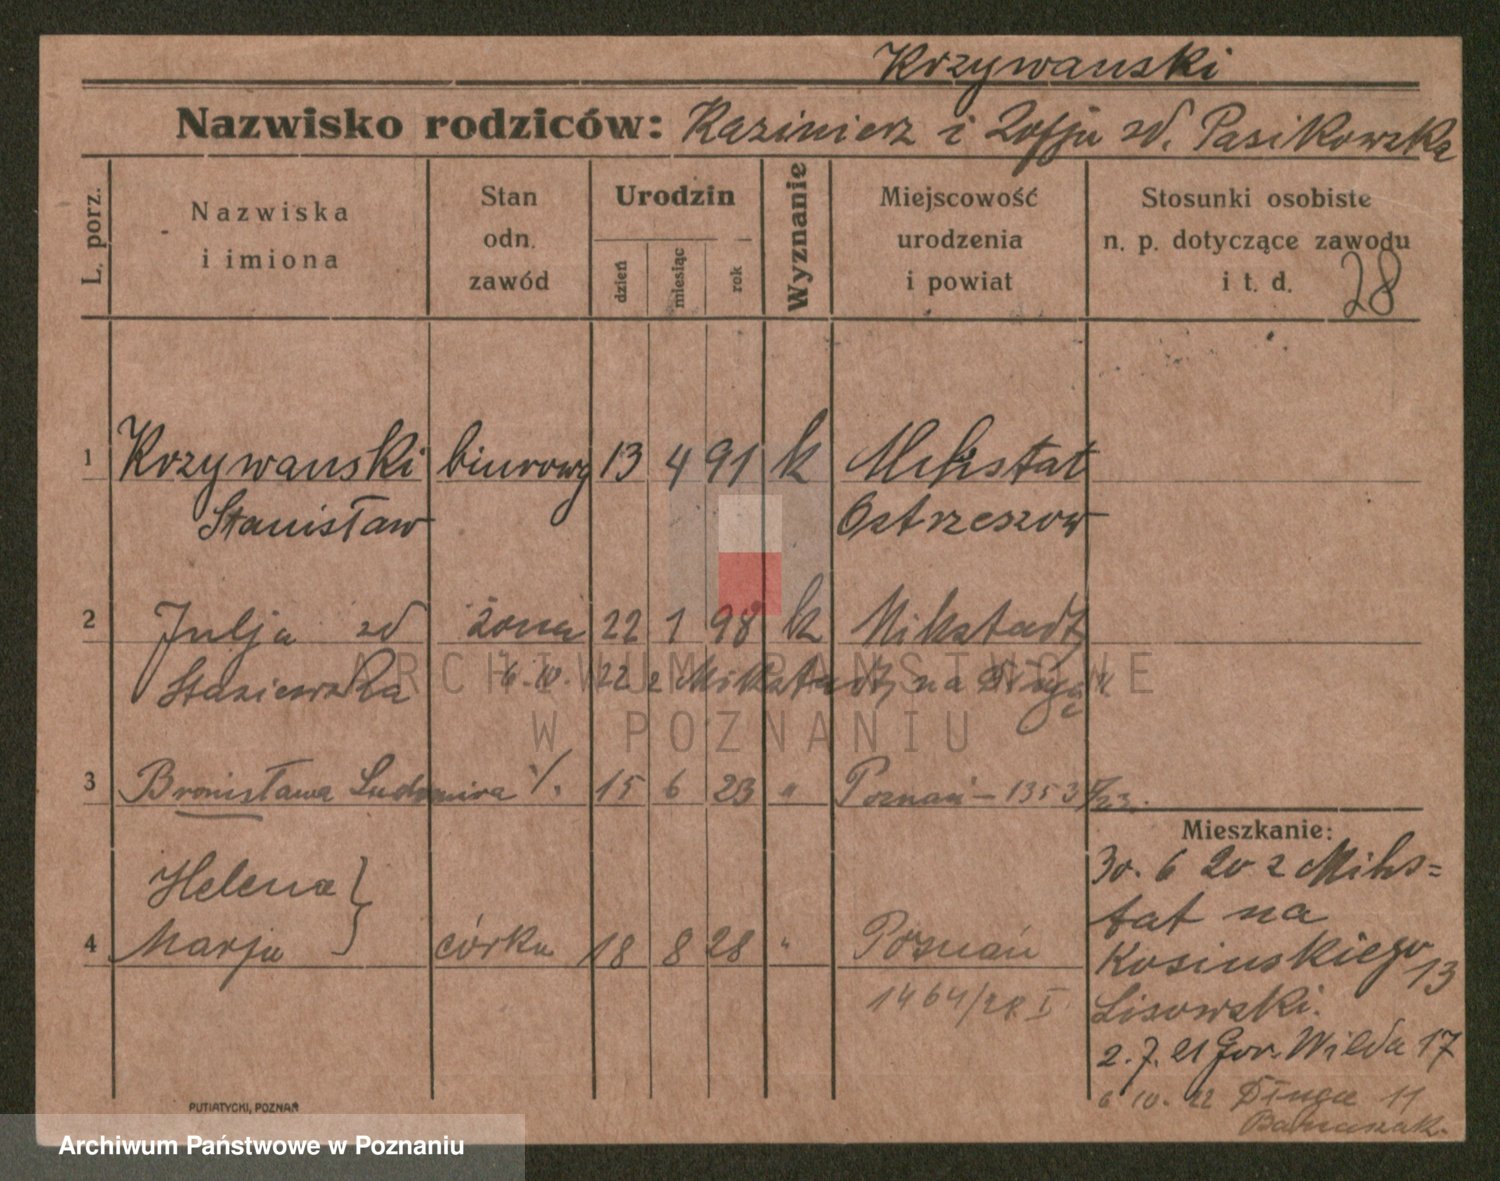 Krzywanski
Nazwisko rodziców: Kazimierz i Zofja zd. Pasikowska
L. porz.
Nazwiska
i imiona
Stan
odn.
zawód
Urodzin
dzień
miesiąc
rok
Wyznanie
Miejscowość
urodzenia
i powiat
Stosunki osobiste
n. p. dotyczące zawodu
i t. d.
28
1 Krzywanski biurowy 13 4 91 k Mikstat
Stanisław Ostrzeszow
2 Julja zd żona 22 1 98 k Mikstadt
Stasiewska 6. 10. 22 z Mikstadt, na Długą
3 Bronisława Ludomira 1/. 15 6 23 " Poznań – 1353 /23.
Helena }
4 Marja córka 18 8 28 " Poznań
1464/28 I
Mieszkanie:
30. 6 20 z Miks=
tat na
Kosinskiego 13
Lisowski.
2. 7. 21 Gor. Wilda 17
6 10. 22 Długa 11
Banaszak.
ARCHIWUM PAŃSTWOWE
W POZNANIU
PUTIATYCKI, POZNAŃ
Archiwum Państwowe w Poznaniu